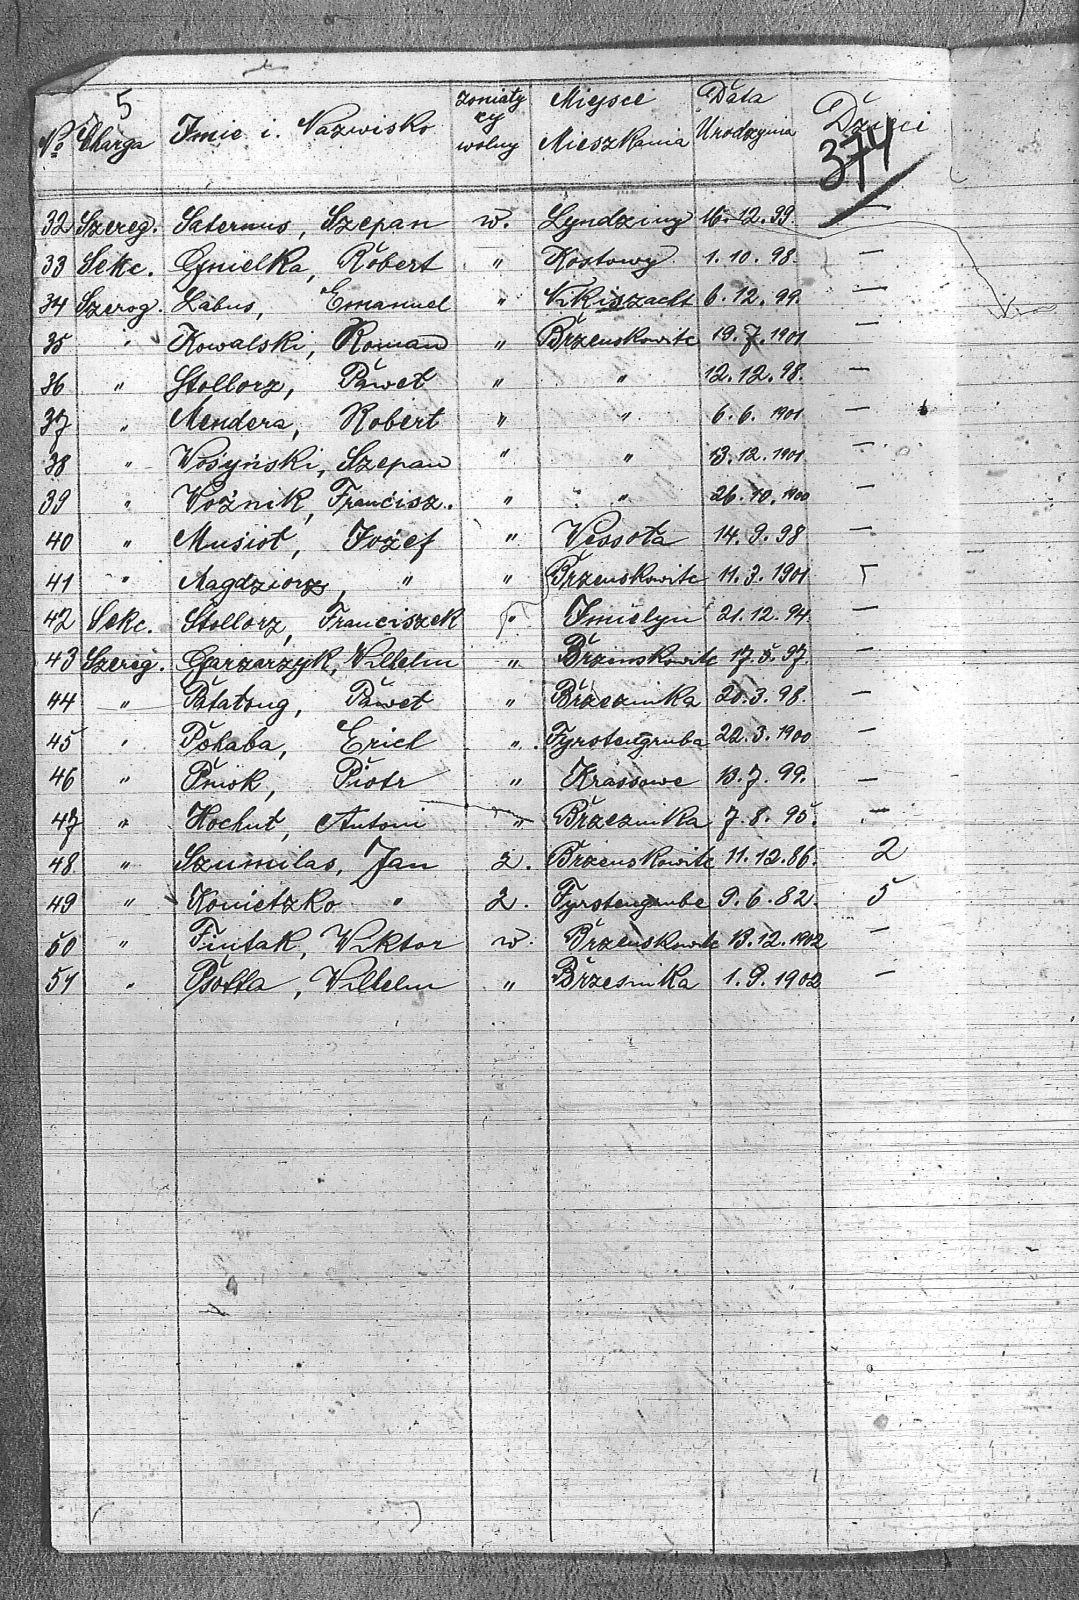 5
374
No Charga Imie i. Nazwisko zoniaty cy wolny Miejsce Mieszkania Data Urodzynia Dzieci
32 Szereg. Saternus, Szepan w. Lyndziny 16.12.99 —
33 Sekc. Gmielka, Robert " Kostowy 1.10.98. —
34 Szereg. Labus, Emanuel " Nikiszacht 6.12.99. —
35 " Kowalski, Roman " Brzenskowitc 19.7.1901 —
36 " Stollorz, Paweł " " 12.12.98. —
37 " Mendera, Robert " " 6.6.1901. —
38 " Wośyński, Szepan " " 13.12.1901 —
39 " Woźnik, Francisz. " " 26.10.1900 —
40 " Musioł, Jozef " Wessoła 14.9.98 —
41 " Magdziorz, " " Brzenskowitc 11.3.1901
42 Sekc. Stollorz, Franciszek " Imielyn 21.12.94. —
43 Szereg. Garzarzyk, Wilhelm " Brzenskowitc 17.5.97. —
44 " Płatong, Paweł " Brzezinka 20.3.98. —
45 " Pohaba, Erich " Fyrstengruba 22.3.1900 —
46 " Pniok, Piotr " Krassowe 13.7.99. —
47 " Hochuł, Antoni " Brzezinka 7.8.95. —
48 " Szumilas, Jan z. Brzenskowitc 11.12.86. 2
49 " Konietzko " z. Fyrstengrube 9.6.82. 5
50 " Fiutak, Wiktor w. Brzenskowitc 13.12.1902 —
51 " Psotta, Wilhelm " Brzesinka 1.9.1902 —